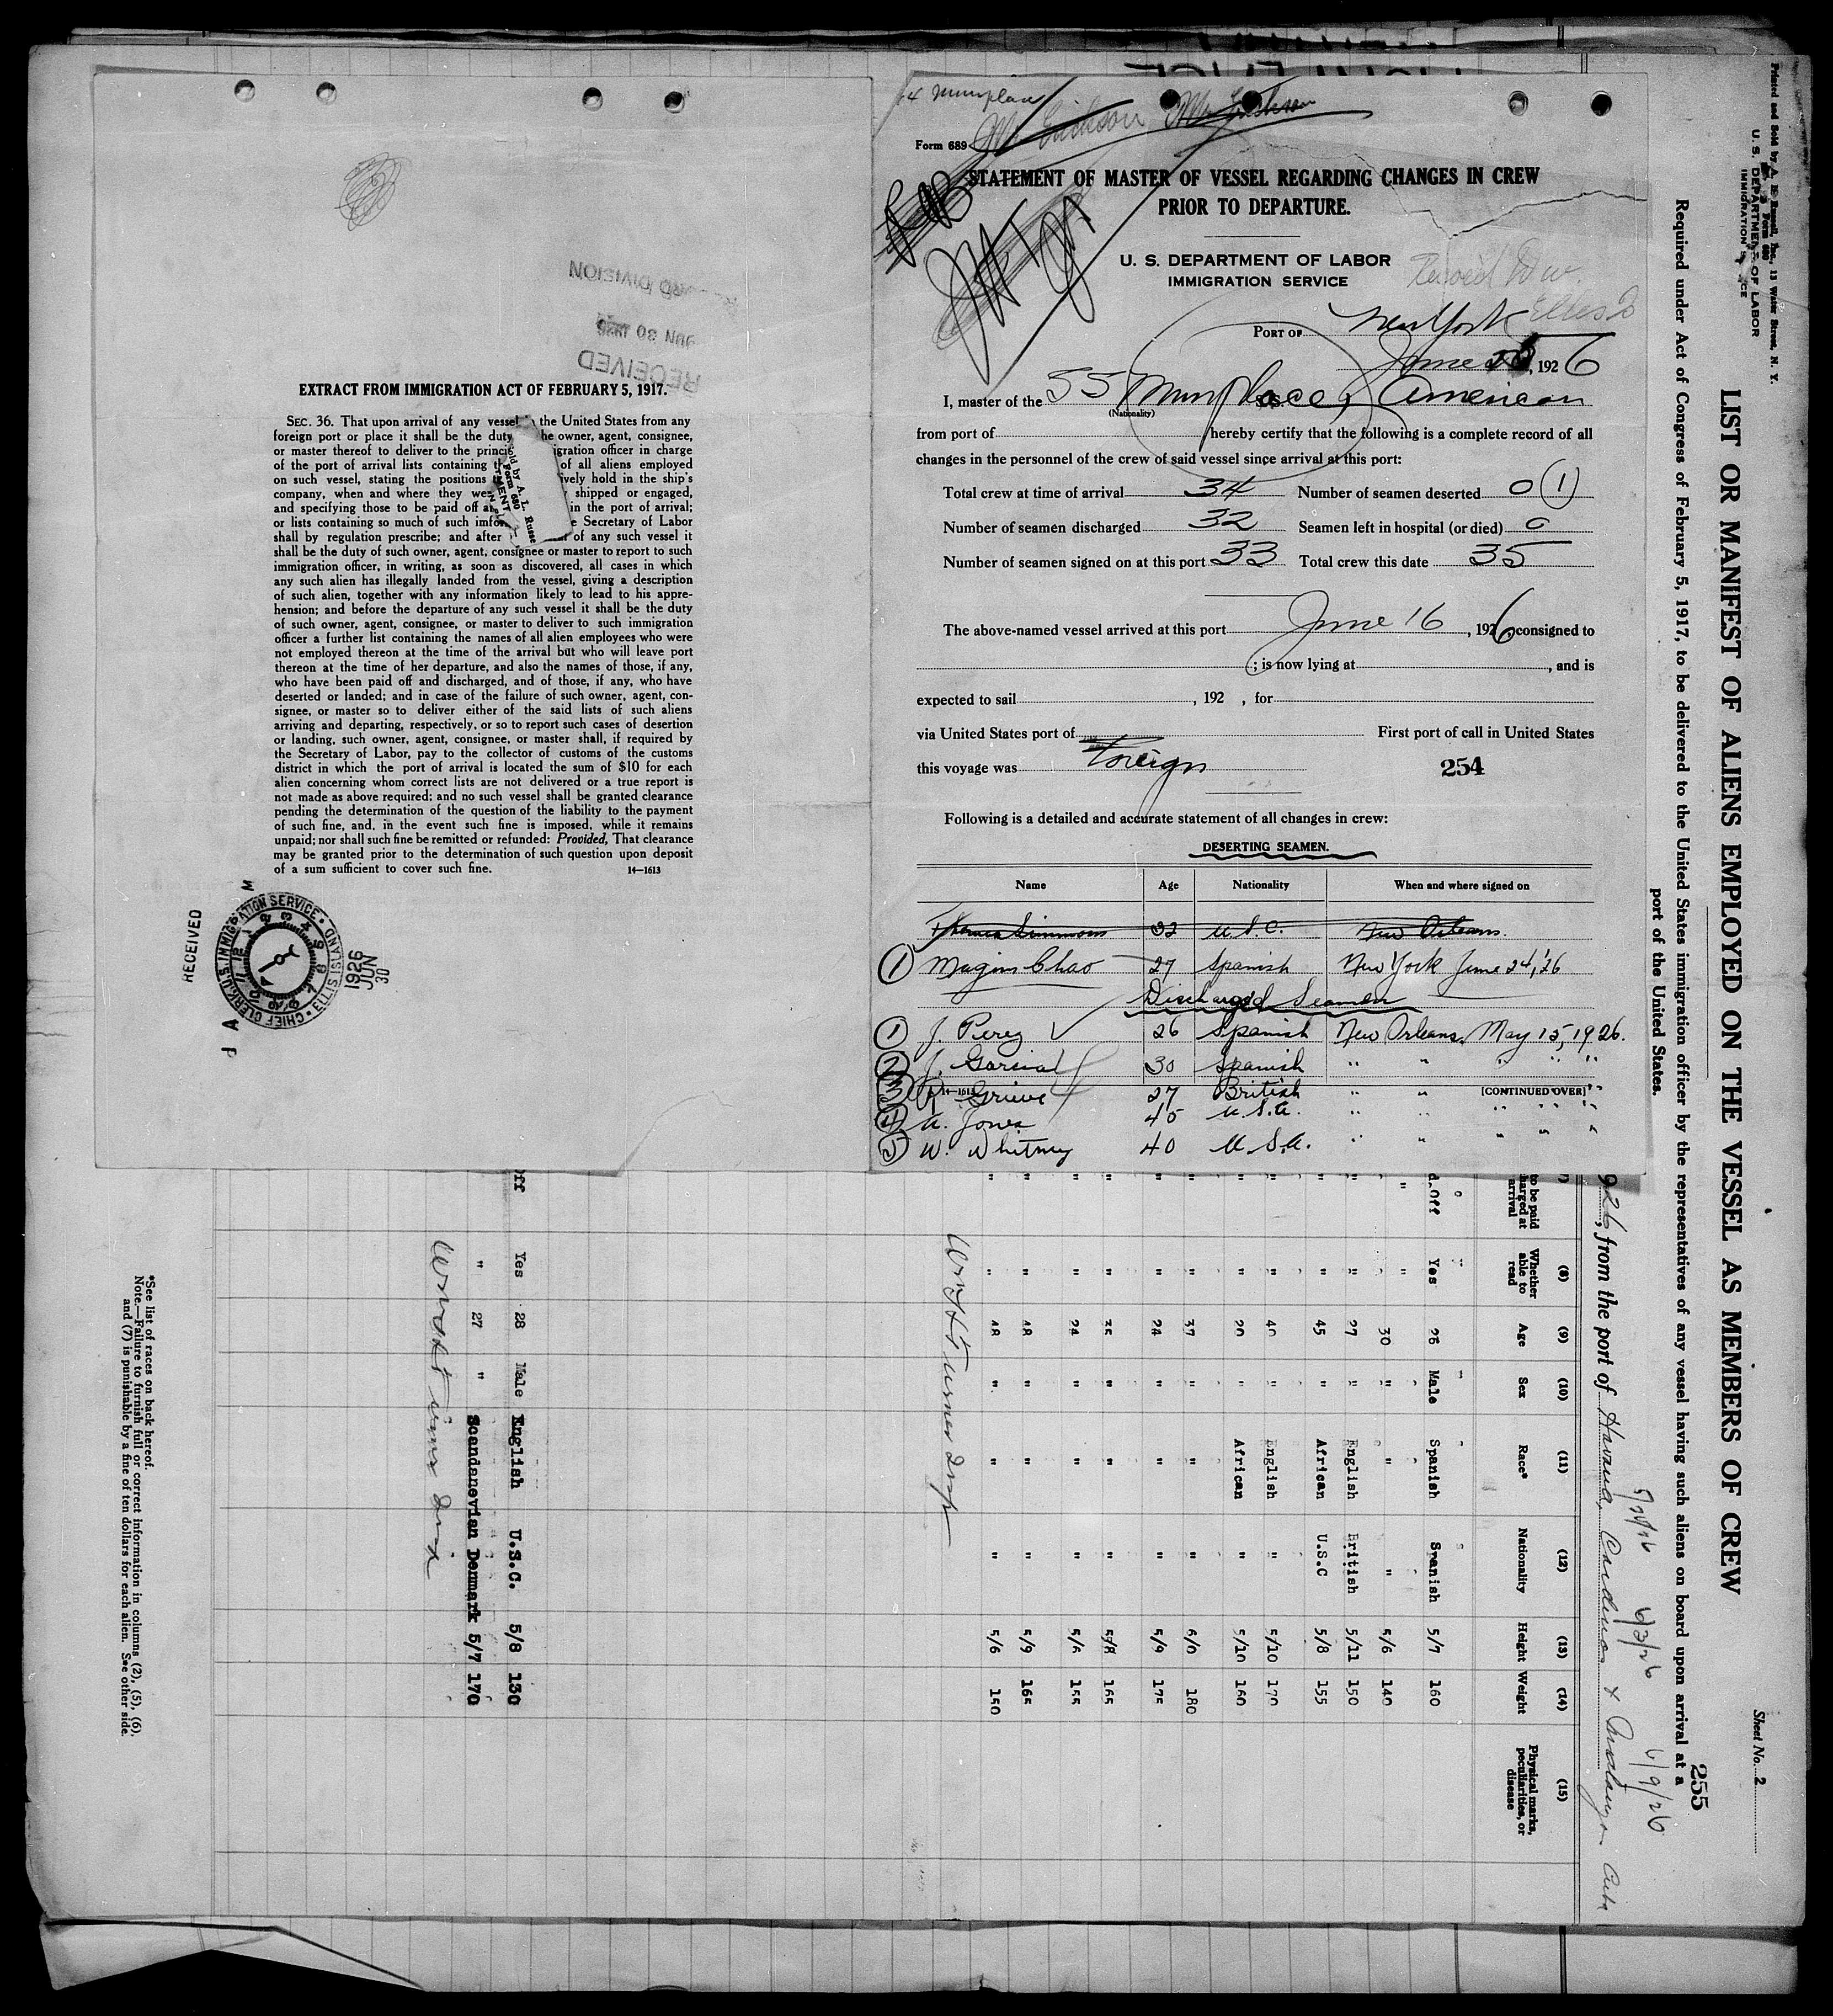 RECORD DIVISION
JUN 30 1926
RECEIVED
EXTRACT FROM IMMIGRATION ACT OF FEBRUARY 5, 1917.
SEC. 36. That upon arrival of any vessel the United States from any
foreign port or place it shall be the duty he owner, agent, consignee,
or master thereof to deliver to the princi igration officer in charge
of the port of arrival lists containing t of all aliens employed
on such vessel, stating the positions ively hold in the ship's
company, when and where they we shipped or engaged,
and specifying those to be paid off a in the port of arrival;
or lists containing so much of such imfo e Secretary of Labor
shall by regulation prescribe; and after of any such vessel it
shall be the duty of such owner, agent, consignee or master to report to such
immigration officer, in writing, as soon as discovered, all cases in which
any such alien has illegally landed from the vessel, giving a description
of such alien, together with any information likely to lead to his appre-
hension; and before the departure of any such vessel it shall be the duty
of such owner, agent, consignee, or master to deliver to such immigration
officer a further list containing the names of all alien employees who were
not employed thereon at the time of the arrival but who will leave port
thereon at the time of her departure, and also the names of those, if any,
who have been paid off and discharged, and of those, if any, who have
deserted or landed; and in case of the failure of such owner, agent, con-
signee, or master so to deliver either of the said lists of such aliens
arriving and departing, respectively, or so to report such cases of desertion
or landing, such owner, agent, consignee, or master shall, if required by
the Secretary of Labor, pay to the collector of customs of the customs
district in which the port of arrival is located the sum of $10 for each
alien concerning whom correct lists are not delivered or a true report is
not made as above required; and no such vessel shall be granted clearance
pending the determination of the question of the liability to the payment
of such fine, and, in the event such fine is imposed, while it remains
unpaid; nor shall such fine be remitted or refunded: Provided, That clearance
may be granted prior to the determination of such question upon deposit
of a sum sufficient to cover such fine. 14—1613
RECEIVED
CHIEF CLERK, U.S. IMMIGRATION SERVICE · ELLIS ISLAND
1926 JUN 30
Munplace
Mr. Erickson
Form 689
STATEMENT OF MASTER OF VESSEL REGARDING CHANGES IN CREW
PRIOR TO DEPARTURE.
U. S. DEPARTMENT OF LABOR
IMMIGRATION SERVICE
PORT OF New York
June , 1926
I, master of the SS Munplace, American
(Nationality)
from port of hereby certify that the following is a complete record of all
changes in the personnel of the crew of said vessel since arrival at this port:
Total crew at time of arrival 34 Number of seamen deserted 0 (1)
Number of seamen discharged 32 Seamen left in hospital (or died) 0
Number of seamen signed on at this port 33 Total crew this date 35
The above-named vessel arrived at this port June 16, 1926, consigned to
; is now lying at , and is
expected to sail , 192 , for
via United States port of First port of call in United States
this voyage was Foreign 254
Following is a detailed and accurate statement of all changes in crew:
DESERTING SEAMEN.
Name Age Nationality When and where signed on
Simmons 32 U.S.C. New Orleans.
1 Magin Chao 27 Spanish New York June 24, '26
Discharged Seamen
1 J. Perez 26 Spanish New Orleans, May 15, 1926.
2 J. Garcia 30 Spanish " " " " "
14—1613 [CONTINUED OVER]
3 Grieve 27 British " "
4 A. Jones 45 U.S.A. " " " " "
5 W. Whitney 40 U.S.A. " " " " "
Printed and Sold by A. L. Russell, Inc., 13 Water Street, N. Y.
Form 680
U. S. DEPARTMENT OF LABOR
IMMIGRATION SERVICE
Sheet No. 2
LIST OR MANIFEST OF ALIENS EMPLOYED ON THE VESSEL AS MEMBERS OF CREW
255
Required under Act of Congress of February 5, 1917, to be delivered to the United States immigration officer by the representatives of any vessel having such aliens on board upon arrival at a
port of the United States.
6/3/26 6/9/26
926, from the port of Havana, Cardenas & Cuba
to be paid harged at arrival (8) Whether able to read (9) Age (10) Sex (11) Race* (12) Nationality (13) Height (14) Weight (15) Physical marks, peculiarities, or disease
d.Off Yes 26 Male Spanish Spanish 5/7 160
" " 30 " " " 5/6 140
" " 27 " English British 5/11 150
" " 45 " African U.S.C 5/8 155
" " 40 " English " 5/10 170
" " 20 " African " 5/10 160
" " 37 " " " 6/0 180
" " 24 " " " 5/9 175
" " 35 " " " 5/8 165
" " 24 " " " 5/6 155
" " 48 " " " 5/9 165
" " 48 " " " 5/6 150
off Yes 28 Male English U.S.C. 5/8 130
" 27 " Scandanevian Denmark 5/7 170
*See list of races on back hereof.
Note.—Failure to furnish full or correct information in columns (2), (5), (6),
and (7) is punishable by a fine of ten dollars for each alien. See other side.